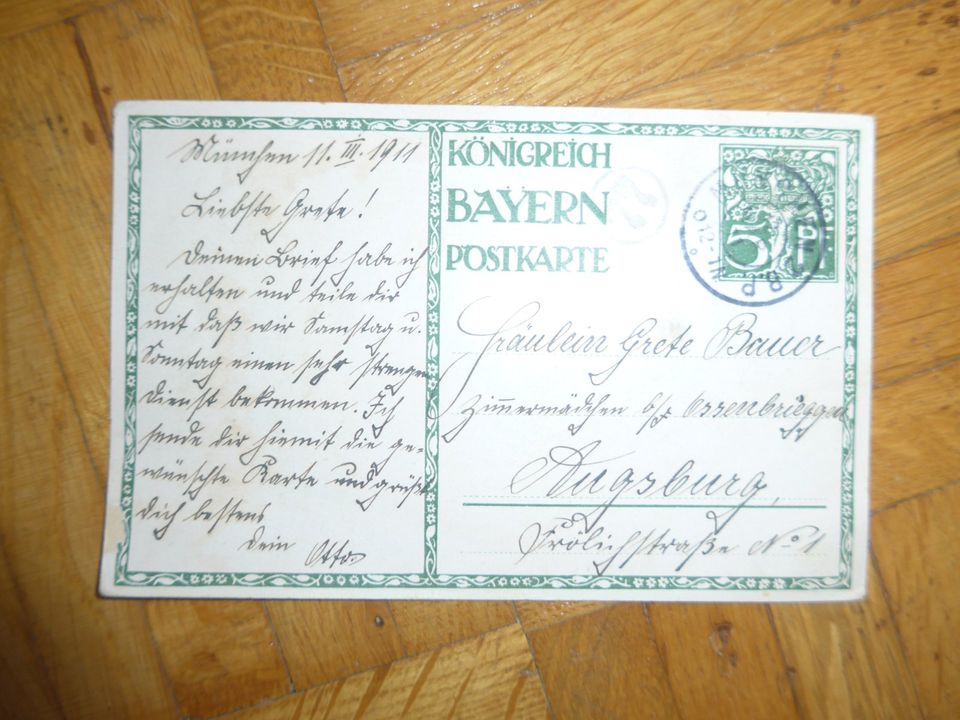 München 11. III. 1911
Liebste Grete!
Deinen Brief habe ich
erhalten und teile dir
mit daß wir Samstag u.
Sonntag einen sehr strengen
Dienst bekommen. Ich
sende dir hiemit die ge-
wünschte Karte und grüßt
dich bestens
Dein Otto
KÖNIGREICH
BAYERN
POSTKARTE
5 Pf
Fräulein Grete Bauer
Zimmermädchen b/
Augsburg,
Frölichstraße No 1